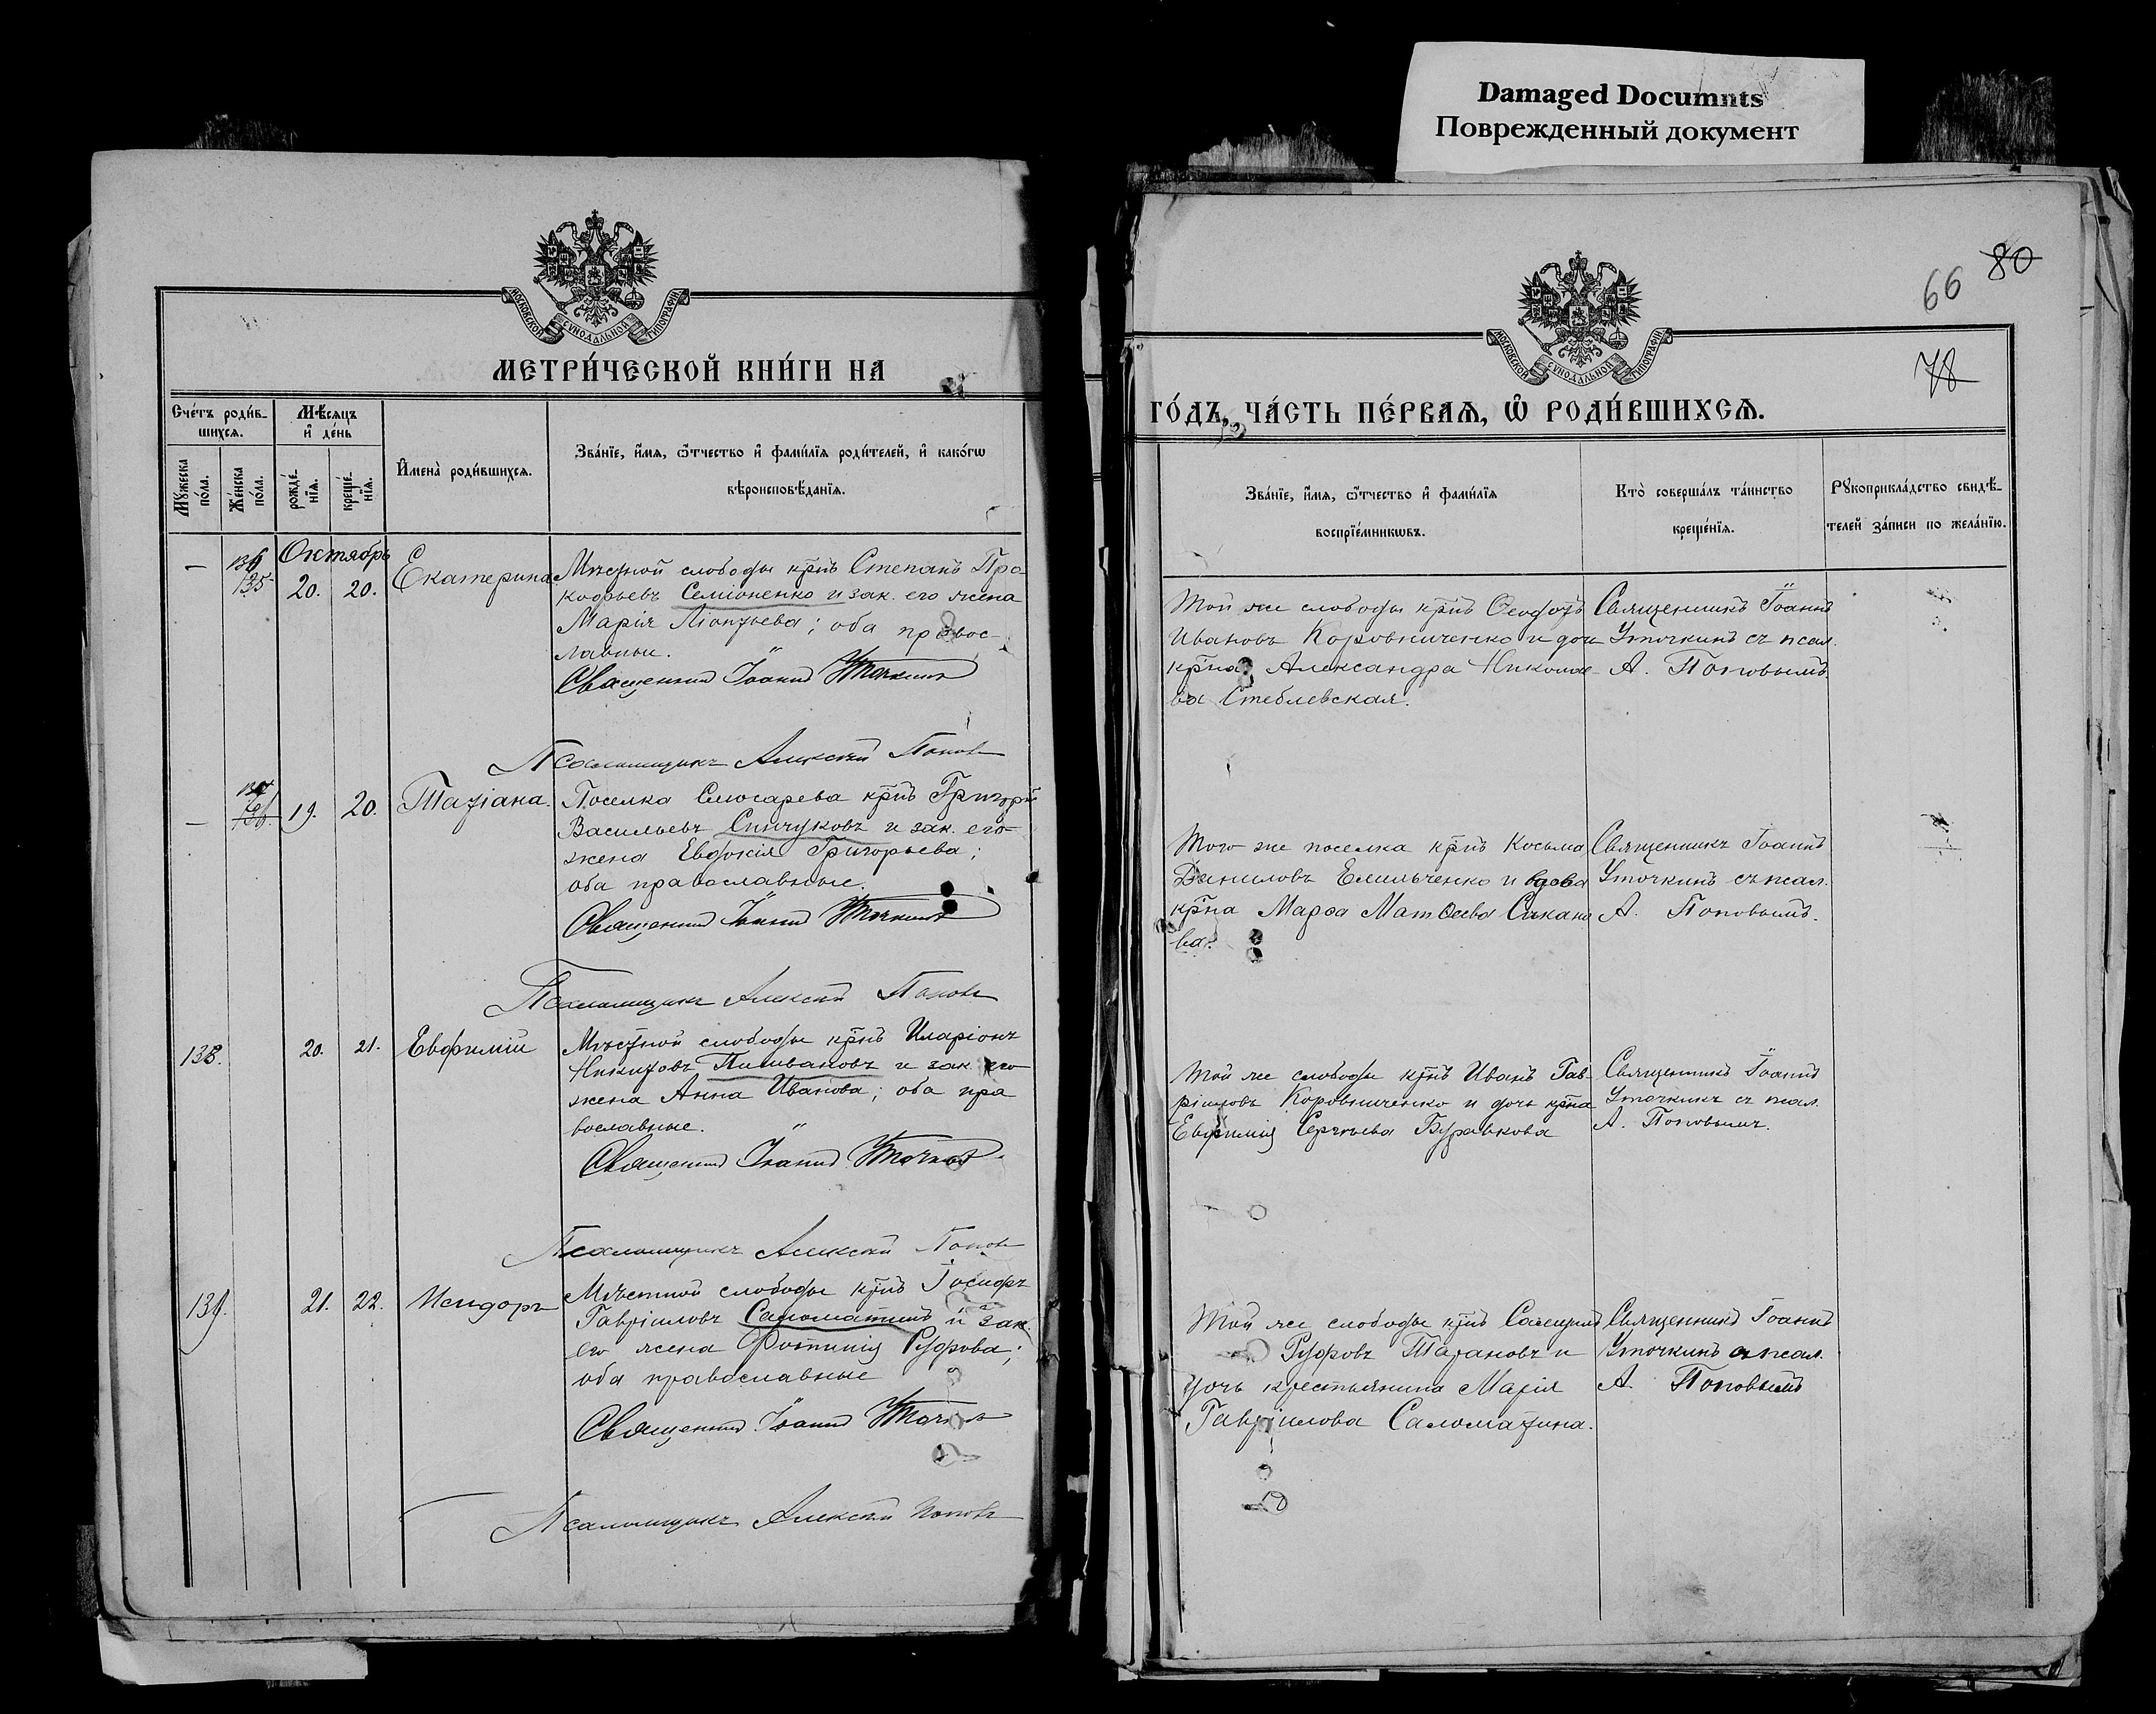 Damaged Documnts
Поврежденный документ
66 80
78
МОСКОВСКОЙ СѴНОДАЛЬНОЙ ТИПОГРАФІИ
МЕТРИ́ЧЕСКОЙ КНИ́ГИ НА
Сче́тъ роди́в-
шихсѧ.
Мѣ́сяцъ
и҆ де́нь
Мꙋ́жеска
по́ла.
Же́нска
по́ла.
рожде́-
нїѧ.
креще́-
нїѧ.
И҆мена̀ роди́вшихсѧ.
Зва́нїе, и҆́мѧ, ѻ҆́тчество и҆ фами́лїѧ роди́телей, и҆ како́гѡ
вѣроисповѣ́данїѧ.
— 136 Октябрь
135 20. 20. Екатерина
Мѣстной слободы кр̃нъ Степанъ Про
кофьевъ Семіоненко и зак. его жена
Марія Ліонтьева; оба правос-
лавные.
Священникъ Іоаннъ Уточкинъ
Псаломщикъ Алексѣй Поповъ
— 137 136. 19. 20. Татіана.
Поселка Слюсарева кр̃нъ Григорій
Васильевъ Синчуковъ и зак. его
жена Евдокія Григорьева;
оба православные.
Священникъ Іоаннъ Уточкинъ
Псаломщикъ Алексѣй Поповъ
138. 20. 21. Евфимій
Мѣстной слободы кр̃нъ Иларіонъ
Никитовъ Пиливановъ и зак. его
жена Анна Иванова; оба пра
вославные.
Священникъ Іоаннъ Уточкинъ
Псаломщикъ Алексѣй Поповъ
139. 21. 22. Исидоръ
Мѣстной слободы кр̃нъ Іосифъ
Гавріиловъ Саломатинъ и зак.
его жена Фотинія Руфова;
оба православные
Священникъ Іоаннъ Уточкинъ
Псаломщикъ Алексѣй Поповъ
МОСКОВСКОЙ СѴНОДАЛЬНОЙ ТИПОГРАФІИ
ГО́ДЪ, ЧА́СТЬ ПЕ́РВАѦ, Ѡ҆ РОДИ́ВШИХСѦ.
Зва́нїе, и҆́мѧ, ѻ҆́тчество и҆ фами́лїѧ
воспрїе́мникѡвъ.
Кто̀ соверша́лъ та́инство
креще́нїѧ.
Рꙋкоприкла́дство свидѣ́-
телей за́писи по жела́нїю.
Той же слободы кр̃нъ Ѳеодотъ
Ивановъ Коровниченко и дочь
кр̃на Александра Николае-
ва Стеблевская.
Священникъ Іоаннъ
Уточкинъ съ псал.
А. Поповымъ.
Того же поселка кр̃нъ Косьма
Даниловъ Емильченко и вдова
кр̃на Марѳа Матѳеева Сакано
ва.
Священникъ Іоаннъ
Уточкинъ съ псал.
А. Поповымъ.
Той же слободы кр̃нъ Иванъ Гав-
ріиловъ Коровниченко и дочь кр̃на
Евфимія Сергѣева Буравкова
Священникъ Іоаннъ
Уточкинъ съ псал.
А. Поповымъ.
Той же слободы кр̃нъ
Руфовъ Тарановъ и
дочь крестьянина Марія
Гавріилова Саломатина.
Священникъ Іоаннъ
Уточкинъ съ псал.
А. Поповымъ